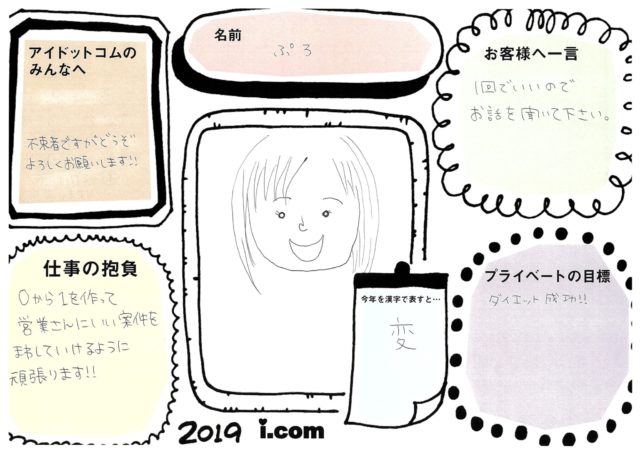 アイドットコムの
みんなへ
不束者ですがどうぞ
よろしくお願いします!!
名前
ぷろ
お客様へ一言
1回でいいので
お話を聞いて下さい。
仕事の抱負
0から1を作って
営業さんにいい案件を
まわしていけるように
頑張ります!!
今年を漢字で表すと…
変
プライベートの目標
ダイエット成功!!
2019 i.com